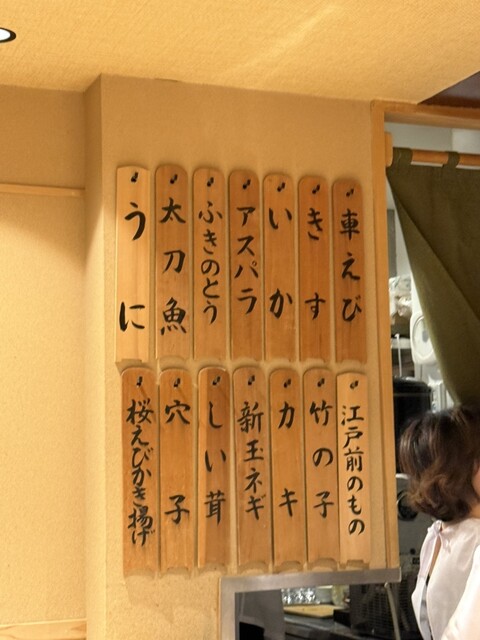 車えび
きす
いか
アスパラ
ふきのとう
太刀魚
うに
江戸前のもの
竹の子
カキ
新玉ネギ
しい茸
穴子
桜えびかき揚げ